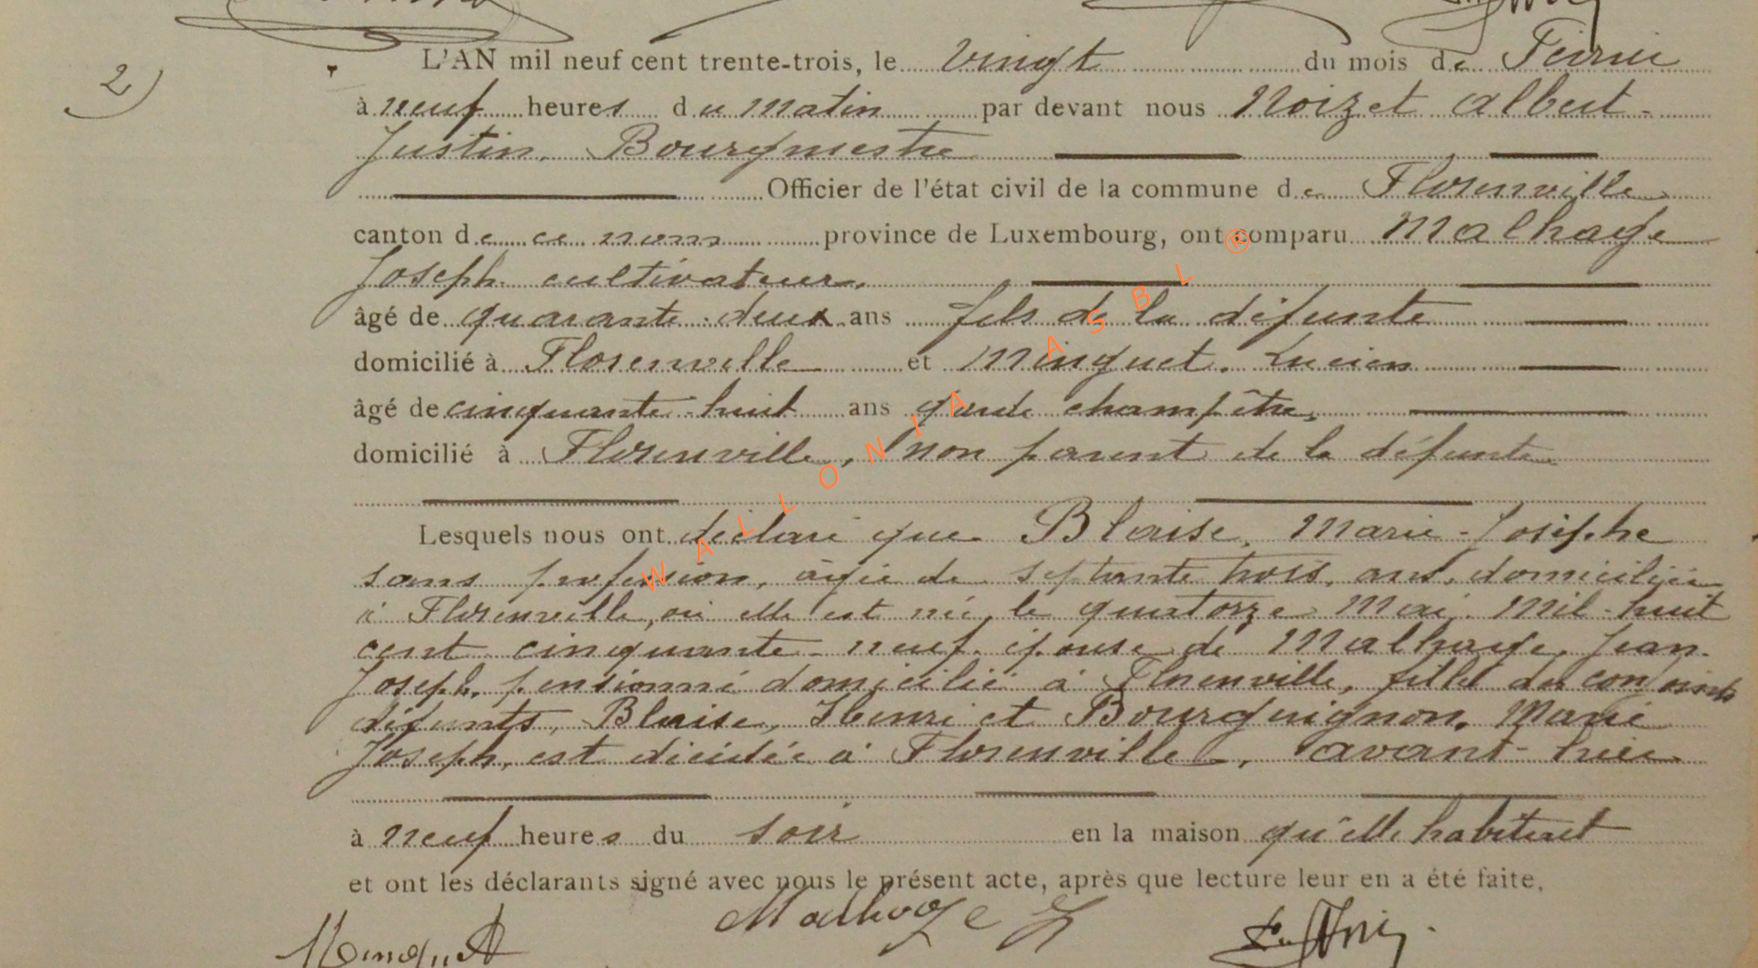 2)
L'AN mil neuf cent trente-trois, le vingt du mois de Février
à neuf heures du matin par devant nous Noizet Albert-
Justin, Bourgmestre
Officier de l'état civil de la commune de Florenville
canton de ce nom province de Luxembourg, ont comparu Malhage
Joseph cultivateur,
âgé de quarante-deux ans fils de la défunte
domicilié à Florenville et Minquet, Lucien
âgé de cinquante-huit ans garde champêtre,
domicilié à Florenville, non parent de la défunte
Lesquels nous ont déclaré que Blaise, Marie-Josèphe
sans profession, âgée de septante trois ans, domiciliée
à Florenville, où elle est née, le quatorze Mai mil-huit
cent cinquante-neuf, épouse de Malhage, Jean-
Joseph, pensionné domicilié à Florenville, fille des conjoints
défunts, Blaise, Henri et Bourguignon, Marie
Joseph, est décédée à Florenville, avant-hier
à neuf heures du soir en la maison qu'elle habitait
et ont les déclarants signé avec nous le présent acte, après que lecture leur en a été faite.
Minquet Malhage J
WALLONIA ASBL ®